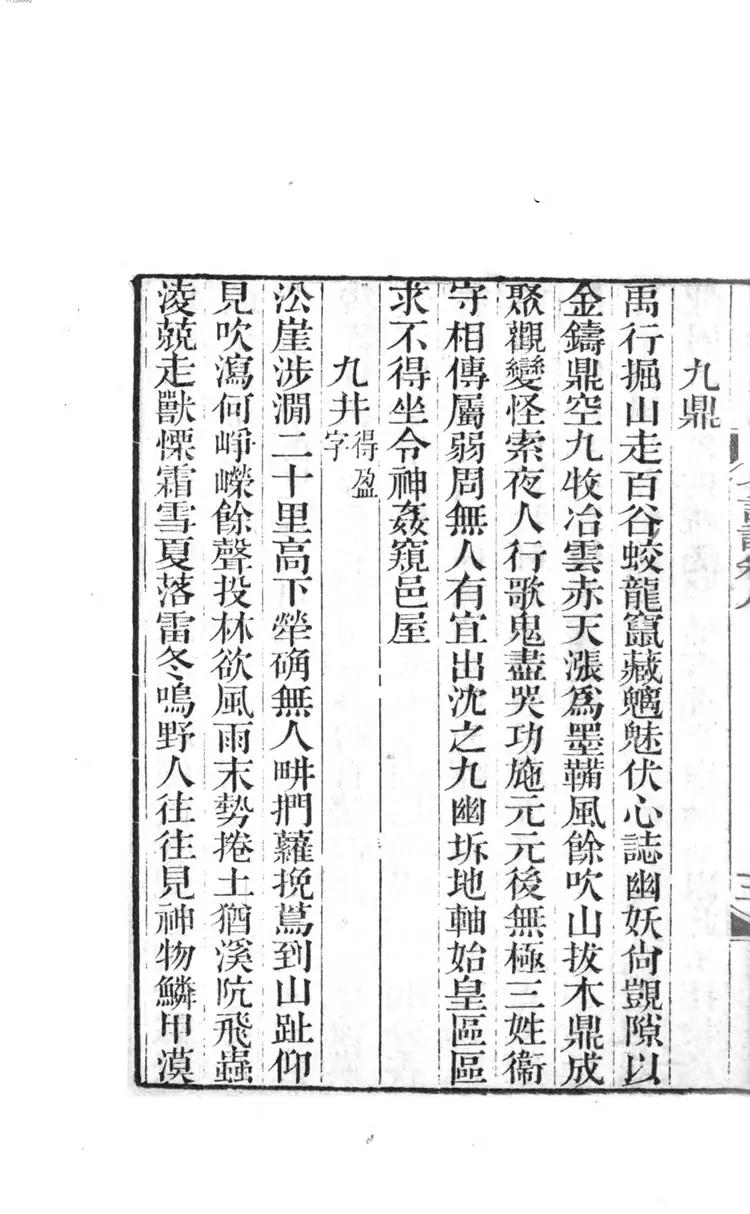 九鼎
禹行掘山走百谷蛟龍竄藏魑魅伏心誌幽妖尚覬隙以
金鑄鼎空九牧冶雲赤天漲為墨鞴風餘吹山拔木鼎成
聚觀變怪索夜人行歌鬼盡哭功施元元後無極三姓衞
守相傳屬弱周無人有宜出沈之九幽坼地軸始皇區區
求不得坐令神姦窺邑屋
九井得盈字
沿崖涉澗三十里高下犖确無人畊捫蘿挽蔦到山趾仰
見吹瀉何崢嶸餘聲投林欲風雨末勢捲土猶溪阬飛蟲
凌兢走獸慄霜雪夏落雷冬鳴野人往往見神物鱗甲漠
三